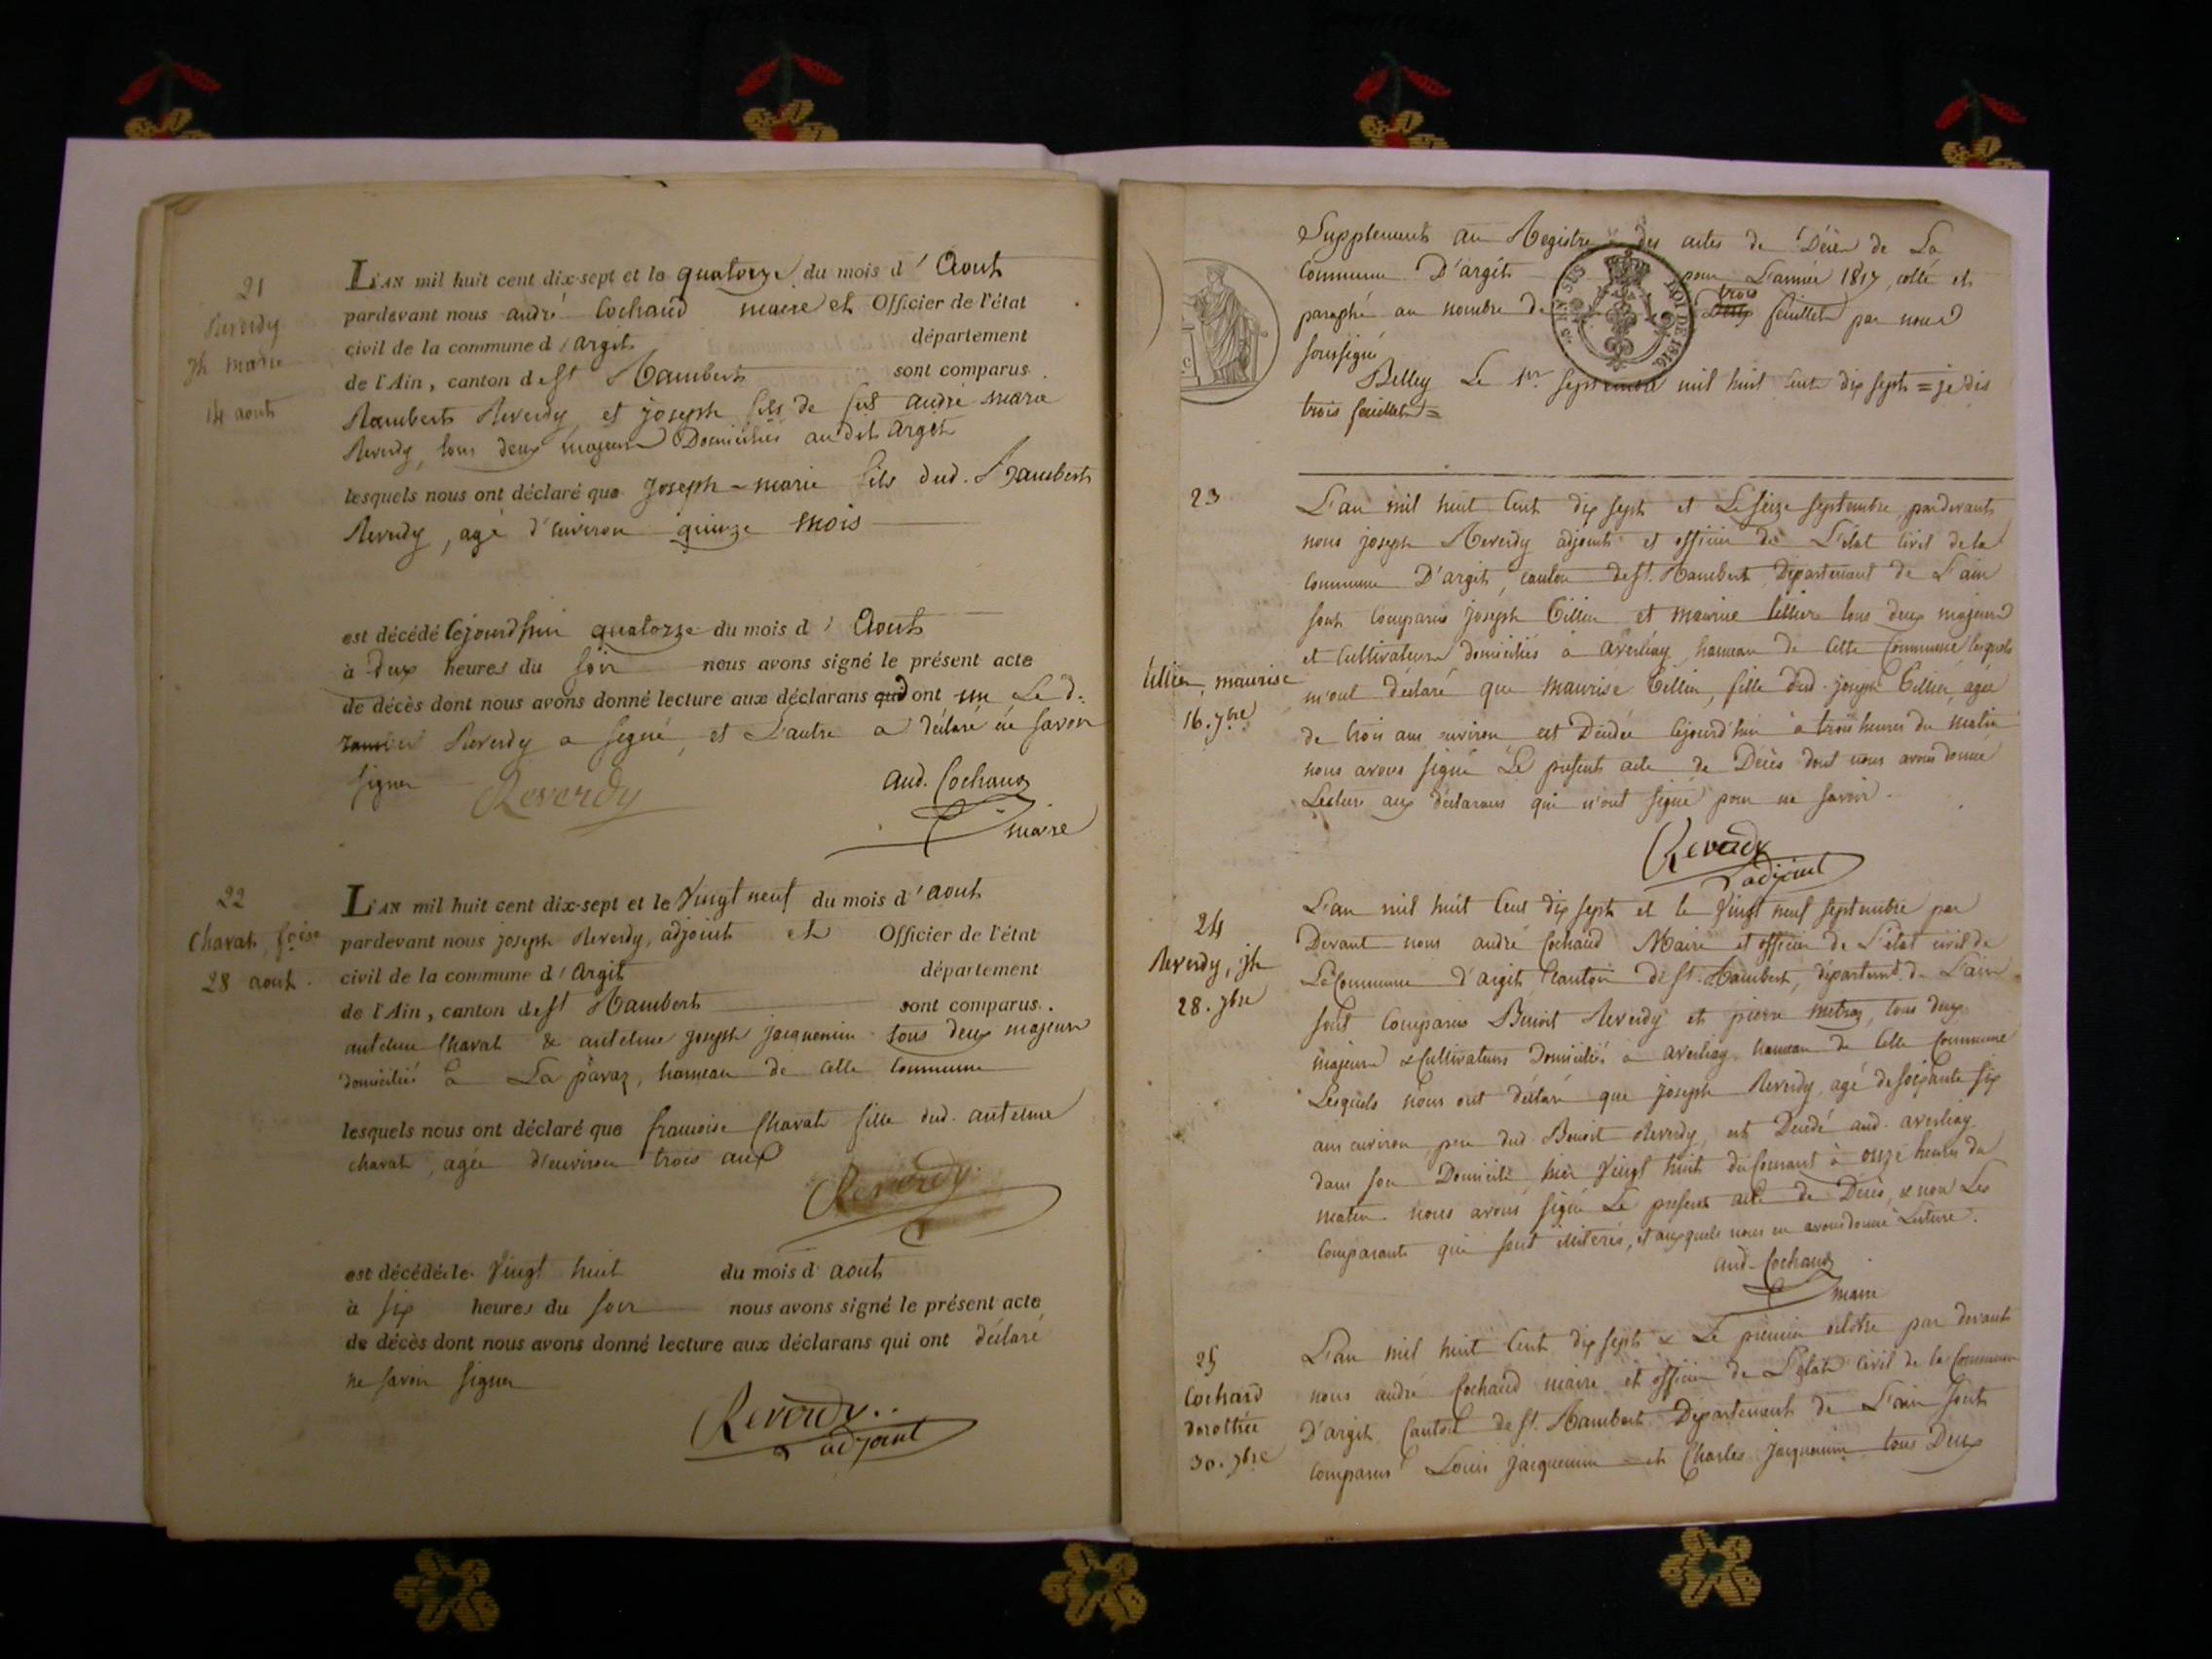 21
Reverdy
jh marie
14 aout
L'AN mil huit cent dix-sept et le quatorze du mois d' Aout
pardevant nous andré Cochaud maire et Officier de l'état
civil de la commune d'argit département
de l'Ain, canton de st Rambert sont comparus
Rambert Reverdy, et joseph fils de feu andré marie
Reverdy, tous deux majeurs Domiciliés audit argit
lesquels nous ont déclaré que joseph-marie fils dud. Rambert
Reverdy, agé d'environ quinze mois
est décédé cejourd'hui quatorze du mois d' Aout
à deux heures du soir nous avons signé le présent acte
de décès dont nous avons donné lecture aux déclarans ont un Le d.
Reverdy a signé, et L'autre a déclaré ne savoir
signer Reverdy
aud. Cochaud
maire
22
Chavat, foise
28 aout.
L'AN mil huit cent dix-sept et le Vingt neuf du mois d' aout
pardevant nous joseph Reverdy, adjoint et Officier de l'état
civil de la commune d'Argit département
de l'Ain, canton de st Rambert sont comparus.
antelme Chavat & antelme joseph jacquemin tous deux majeurs
domiciliés à La pavaz, hameau de cette Commune
lesquels nous ont déclaré que francoise Chavat fille dud. antelme
chavat, agée d'environ trois ans
Reverdy
est décédée le Vingt huit du mois d' aout
à six heures du soir nous avons signé le présent acte
de décès dont nous avons donné lecture aux déclarans qui ont déclaré
ne savoir signer
Reverdy..
adjoint
Supplement au Registre des actes de Décès de La
Commune D'argit pour L'année 1817, collé et
paraphé au nombre de deux trois feuillets par nous
soussigné
EN SUS LOI DE 1816.
Belley Le 1er septembre mil huit cent dix sept = je dis
trois feuillets =
23
tillier, maurise
16. 7bre
L'an mil huit Cent dix sept et Le seize septembre pardevant
nous joseph Reverdy adjoint et officier de L'état Civil de la
Commune D'argit, canton de st. Rambert, Département de L'ain
sont Comparus joseph Tillier et maurice tillier tous deux majeurs
et Cultivateurs domiciliés à averliay hameau de cette Commune lesquels
m'ont déclaré que maurise Tillier, fille dud. joseph Tillier, agée
de trois ans environ est Décédée cejourd'hui à trois heures du matin
nous avons signé Le present acte de Décès dont nous avons donné
Lecture aux déclarans qui n'ont signé pour ne savoir.
Reverdy
adjoint
24
Reverdy, jh
28. 7bre
L'an mil huit Cent dix sept et le Vingt neuf septembre par
Devant nous andré Cochaud Maire et officier de L'état civil de
La Commune d'argit Canton de st. Rambert, départemt. de L'ain
sont Comparus Benoit Reverdy et pierre metraz, tous deux
majeurs & Cultivateurs Domiciliés à averliay hameau de cette Commune
Lesquels nous ont déclaré que joseph Reverdy, agé de soixante six
ans environ, pere dud. Benoit Reverdy, est Décédé aud. averliay
dans son Domicile, hier Vingt huit du Courant à onze heures du
matin. nous avons signé Le present acte de Décès, & non Les
Comparants qui sont illiterés, et auxquels nous en avons donné Lecture.
aud. Cochaud
maire
25
Cochard
dorothée
30. 7bre
L'an mil huit Cent dix sept & Le premier octobre par devant
nous andré Cochaud maire et officier de L'état Civil de la Commune
D'argit, Canton de st. Rambert Département de L'ain sont
Comparus Louis jacquemin et Charles jacquemin tous Deux